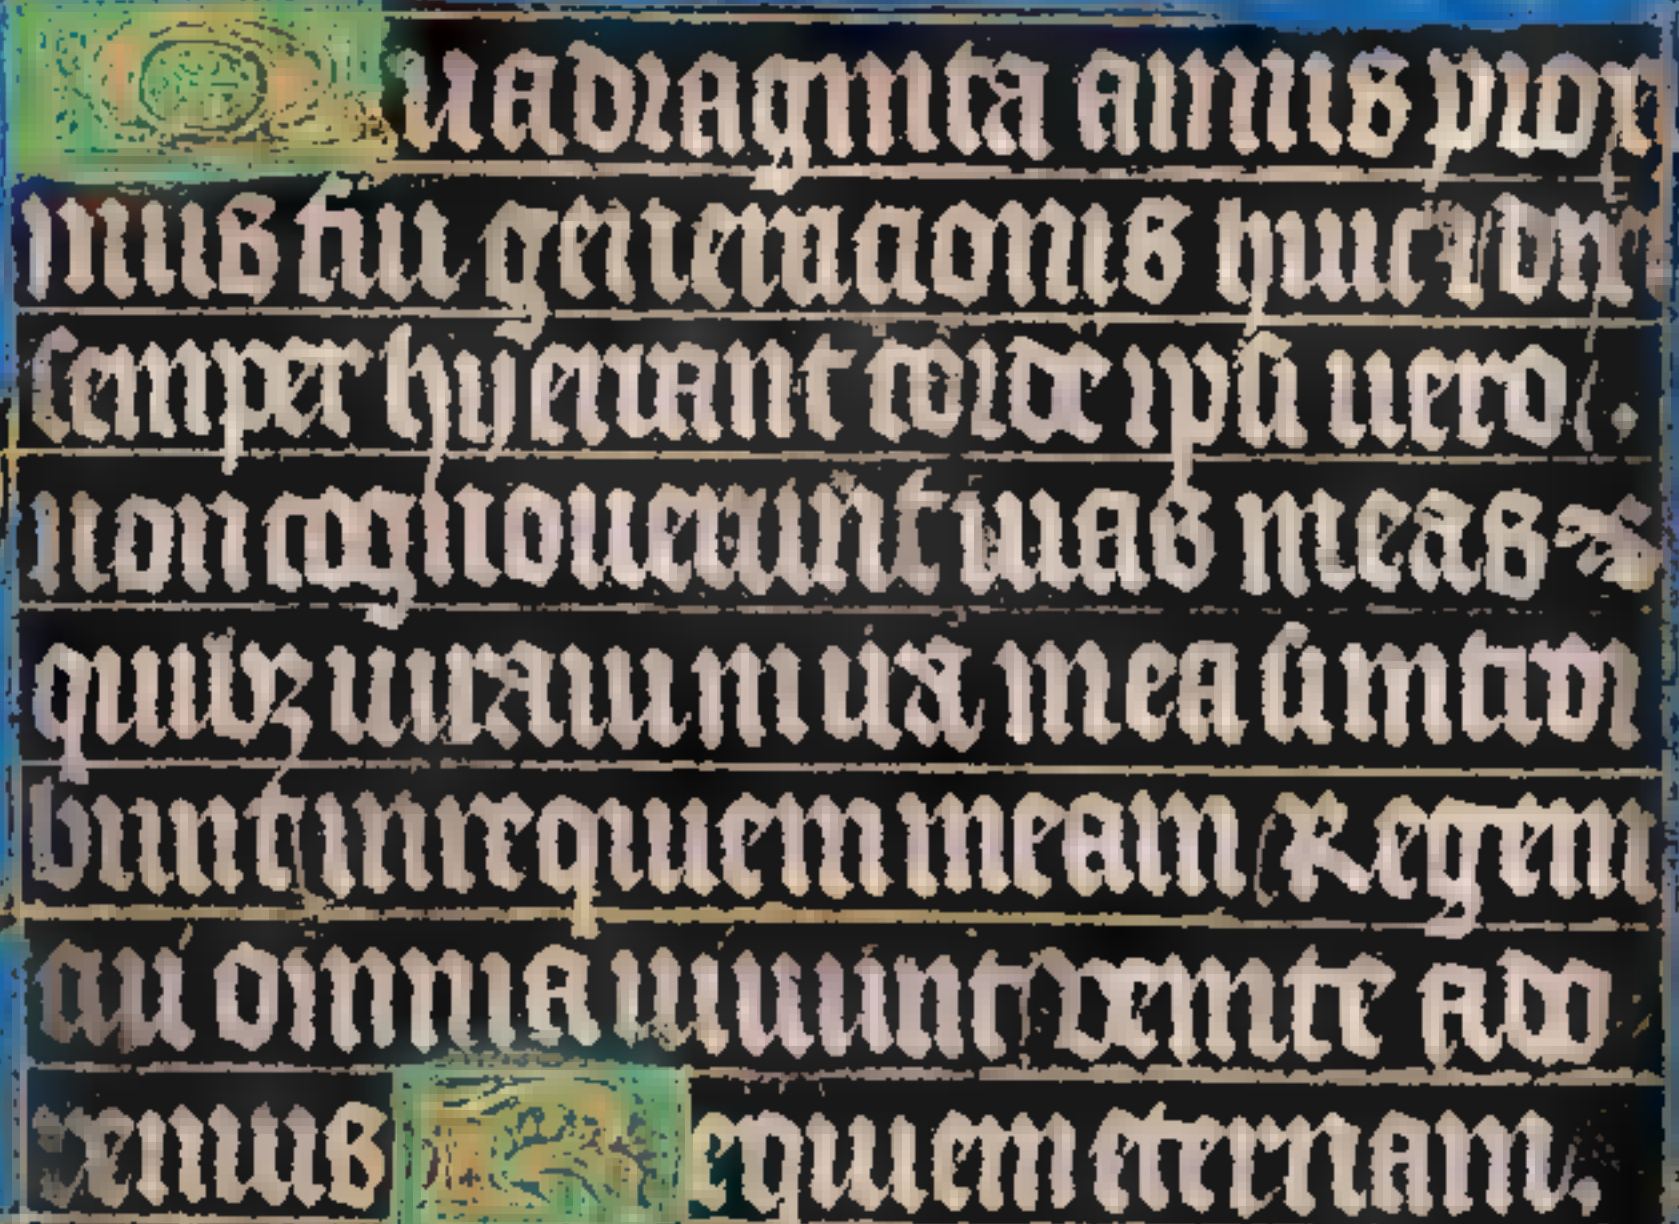 Quadraginta annis prox
imus fui generacionis huic ⁊ dixi
semper hij errant corde ipsi uero
non cognouerunt uias meas
quibz iuraui in ira mea si intrar
bunt in requiem meam Regem
cui omnia uiuunt uenite ado
remus Requiem eternam.